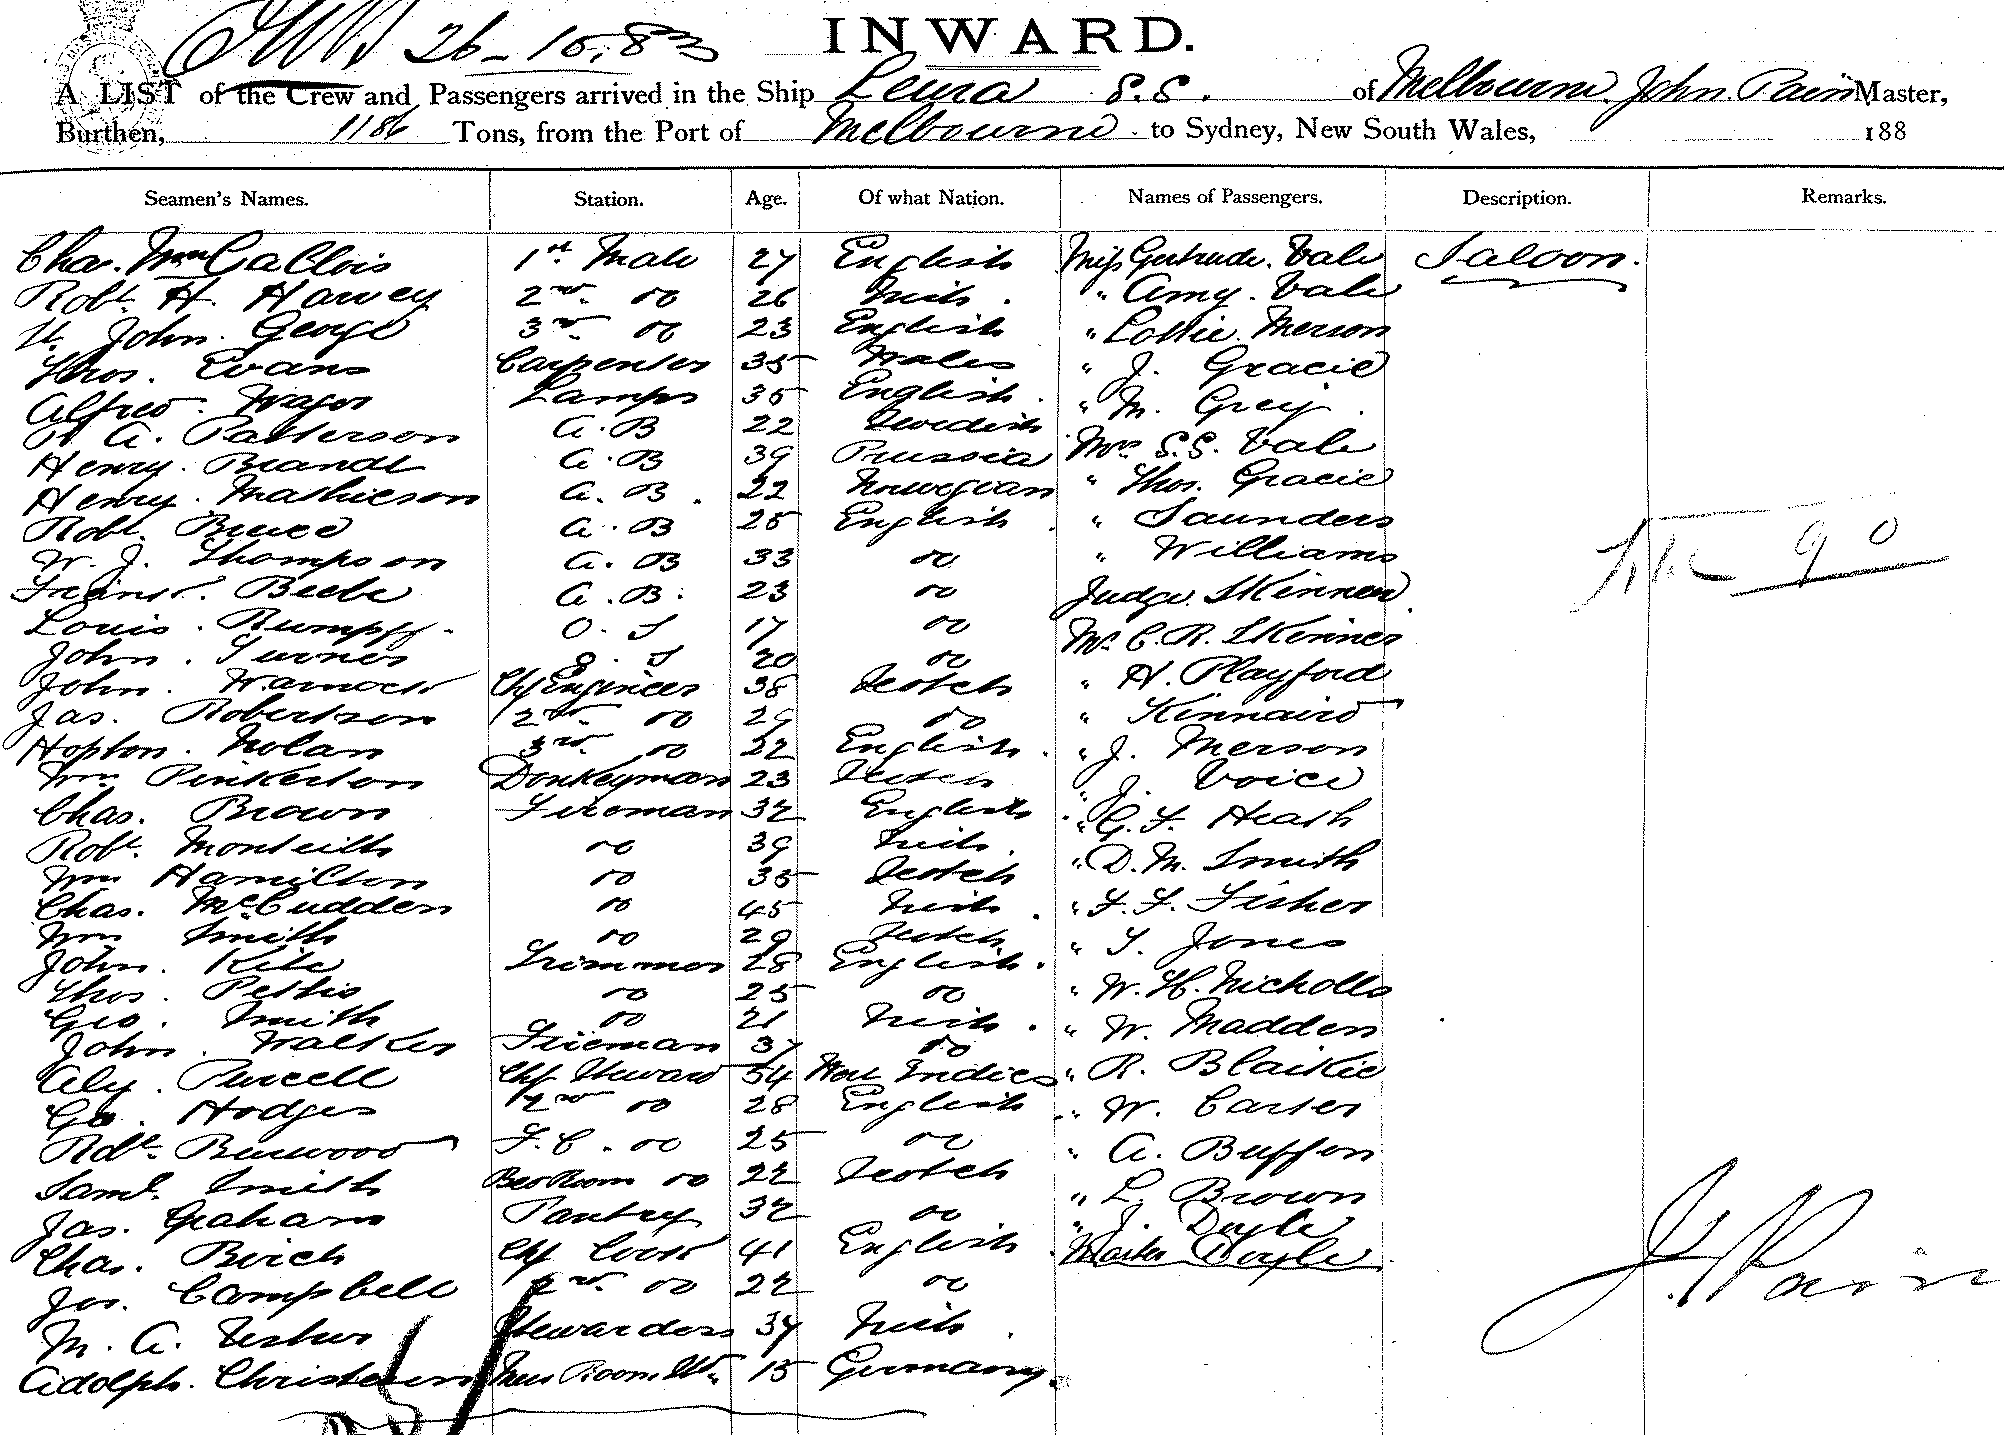 26-10.83
INWARD.
A LIST of the Crew and Passengers arrived in the Ship Leura S.S. of Melbourne, John Pain Master,
Burthen, 1186 Tons, from the Port of Melbourne to Sydney, New South Wales, 188
Seamen's Names. Station. Age. Of what Nation. Names of Passengers. Description. Remarks.
Chas. Wm 1st Mate 27 English Miss Gertrude Vale Saloon.
Robt. H. Harvey 2nd do 26 Irish. " Amy. Vale
John. George 3rd do 23 English " Lottie Merson
Thos. Evans Carpenter 35 Wales " J. Gracie
Alfred. Lamps 35 English. " M. Grey
A. Patterson A.B 22 Swedish Mrs S.S. Vale
Henry. Brandt A.B 39 Prussia " Thos. Gracie
Henry. Mathieson A.B. 22 Norwegian " Saunders
Robt. Bruce A.B 25 English. " Williams
W. J. Thompson A.B 33 do Judge Skinner
Beebe A.B. 23 do Mr C.R. Skinner
Louis. Rumpff. O.S 17 do " H. Playford
John. Turner O.S 20 do " Kinnaird
John. Warnock Chf Engineer 38 Scotch " J. Merson
Jas. Robertson 2nd. do 29 do " J. Voice
Hopton. Nolan 3rd. do 22 English. " G. F. Heath
Wm Pinkerton Donkeyman 23 Scotch " D. M. Smith
Chas. Brown Fireman 32 English " F. F. Fisher
Robt. Monteith do 39 Irish. " T. Jones
Wm Hamilton do 35 Scotch " W. H. Nicholls
Chas. McCudden do 45 Irish. " W. Madden
Wm Smith do 29 Scotch. " R. Blaikie
John. Kite Trimmer 28 English. " W. Carter
Thos. Pettis do 25 do " A. Buffon
Geo. Smith do 21 Irish. " L. Brown
John. Walker Fireman 37 do " J. Doyle
Aly. Purcell Chf Steward 54 West Indies Master Doyle
Geo. Hodges 2nd do 28 English
Robt. Burwood F.C. do 25 do
Saml. Smith Bed Room do 22 Scotch
Jas. Graham Pantry 32 do
Chas. Birch Chf Cook 41 English
Jos. Campbell 2nd. do 22 do
M. A. Stewardess 37 Irish.
Adolph. Christensen Mess Room St. 15 Germany.
90
J. Pain